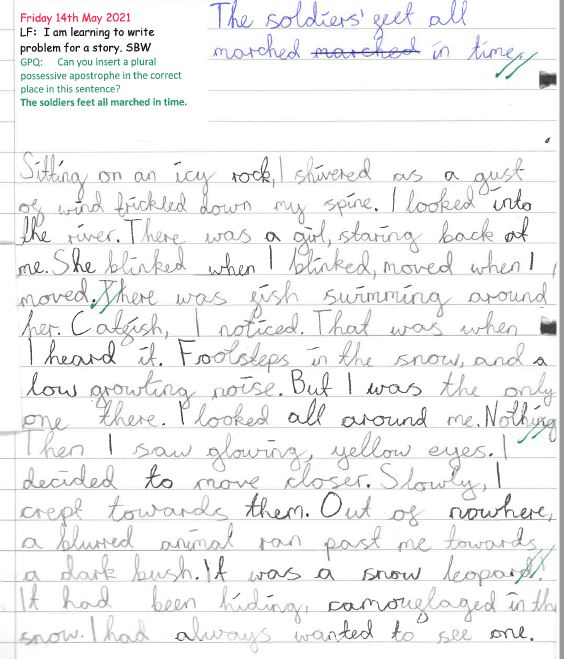 Friday 14th May 2021
LF: I am learning to write
problem for a story. SBW
GPQ: Can you insert a plural
possessive apostrophe in the correct
place in this sentence?
The soldiers feet all marched in time.
The soldiers' feet all
marched marched in time.
Sitting on an icy rock, I shivered as a gust
of wind trickled down my spine. I looked into
the river. There was a girl, staring back at
me. She blinked when I blinked, moved when I
moved. There was fish swimming around
her. Catfish, I noticed. That was when
I heard it. Footsteps in the snow, and a
low growling noise. But I was the only
one there. I looked all around me. Nothing
Then I saw glowing, yellow eyes. I
decided to move closer. Slowly, I
crept towards them. Out of nowhere,
a blurred animal ran past me towards
a dark bush. It was a snow leopard!
It had been hiding, camouflaged in the
snow. I had always wanted to see one.